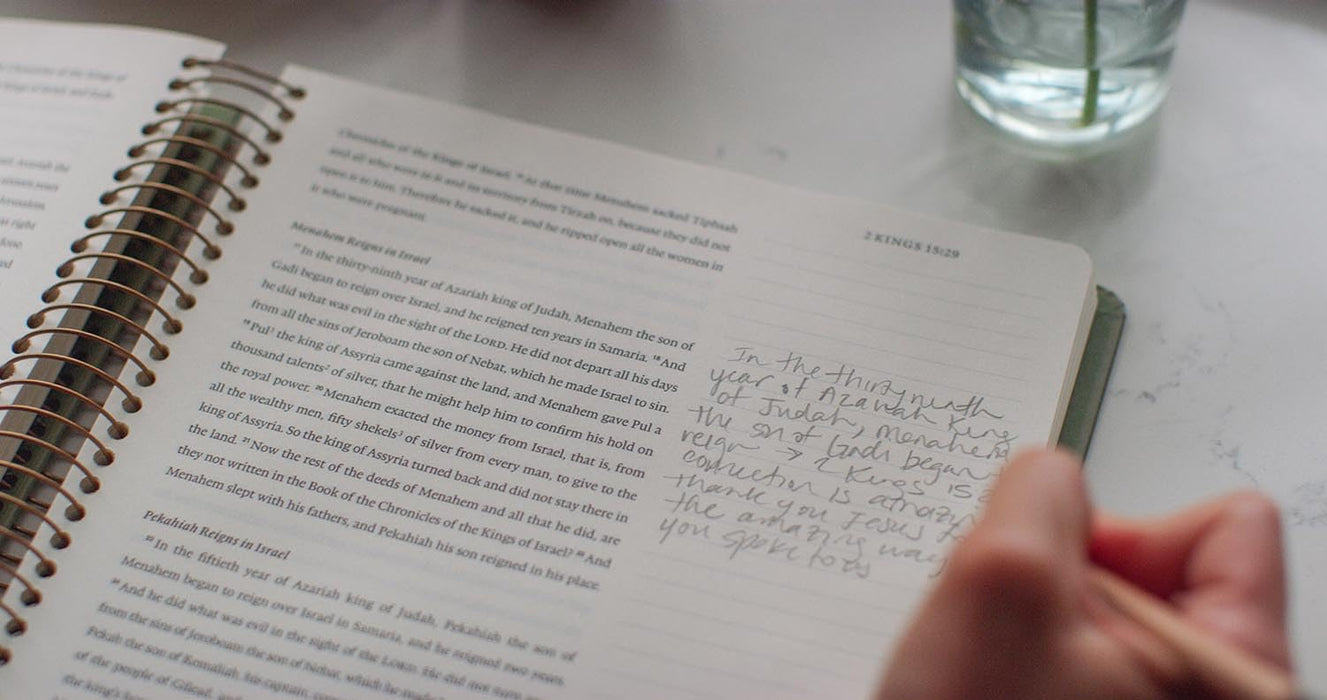 Chronicles of the Kings of Israel. ¹⁶ At that time Menahem sacked Tiphsah
and all who were in it and its territory from Tirzah on, because they did not
open it to him. Therefore he sacked it, and he ripped open all the women in
it who were pregnant.
Menahem Reigns in Israel
¹⁷ In the thirty-ninth year of Azariah king of Judah, Menahem the son of
Gadi began to reign over Israel, and he reigned ten years in Samaria. ¹⁸ And
he did what was evil in the sight of the LORD. He did not depart all his days
from all the sins of Jeroboam the son of Nebat, which he made Israel to sin.
¹⁹ Pul² the king of Assyria came against the land, and Menahem gave Pul a
thousand talents² of silver, that he might help him to confirm his hold on
the royal power. ²⁰ Menahem exacted the money from Israel, that is, from
all the wealthy men, fifty shekels³ of silver from every man, to give to the
king of Assyria. So the king of Assyria turned back and did not stay there in
the land. ²¹ Now the rest of the deeds of Menahem and all that he did, are
they not written in the Book of the Chronicles of the Kings of Israel? ²² And
Menahem slept with his fathers, and Pekahiah his son reigned in his place.
Pekahiah Reigns in Israel
²³ In the fiftieth year of Azariah king of Judah, Pekahiah the son of
Menahem began to reign over Israel in Samaria, and he reigned two years.
²⁴ And he did what was evil in the sight of the LORD. He did not turn away
from the sins of Jeroboam the son of Nebat, which he made
Pekah the son of Remaliah, his captain,
of the people of Gilead, and
the king's
2 KINGS 15:29
In the thirty nineth
year of Azariah King
of Judah, Menahem
the son of Gadi began
reign → 2 Kings 15
connection is amazin
thank you Jesus fo
the amazing way
you spoke to us